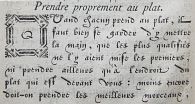 Prendre proprement au plat.
Quand chacun prend au plat, il
faut bien se garder d'y mettre
la main, que les plus qualifiés
ne l'y aient mise les premiers
ni prendre ailleurs qu'à l'endroit du
plat qui est devant vous: moins encore
doit-on prendre les meilleurs morceaux,